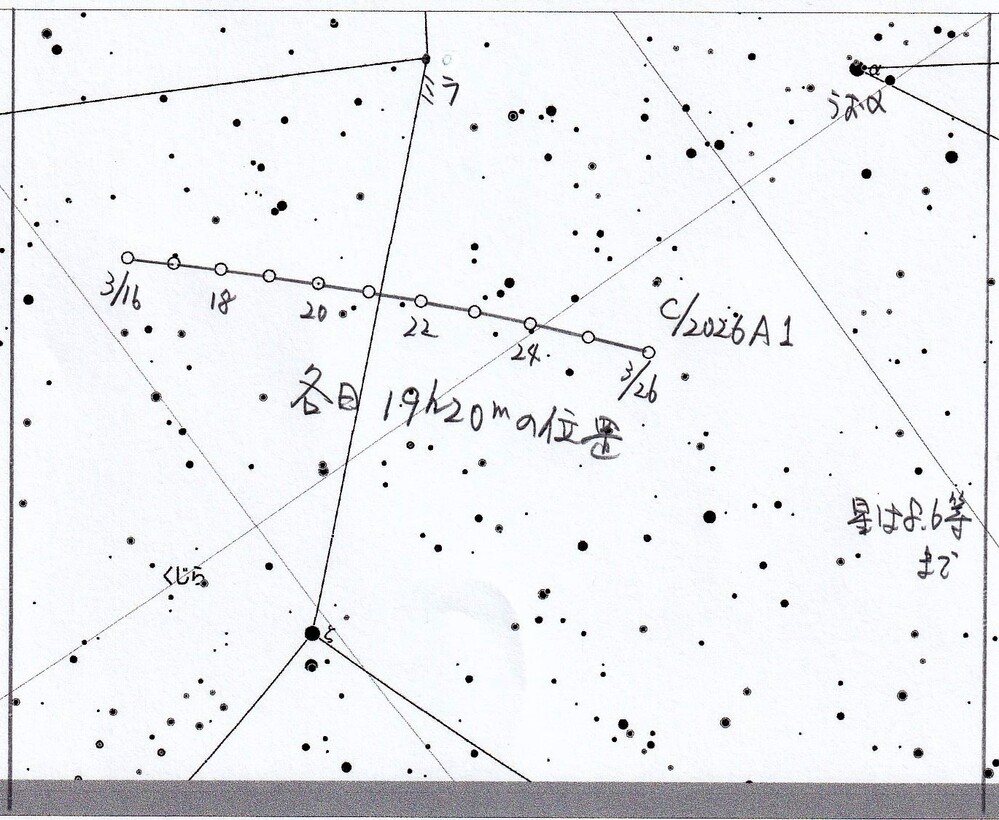 ο
ミラ
α
うお・α
3/16
18
20
22
24.
3/26
C/2026A1
各日 19h20mの位置
星は8.6等
まで
くじら
ζ